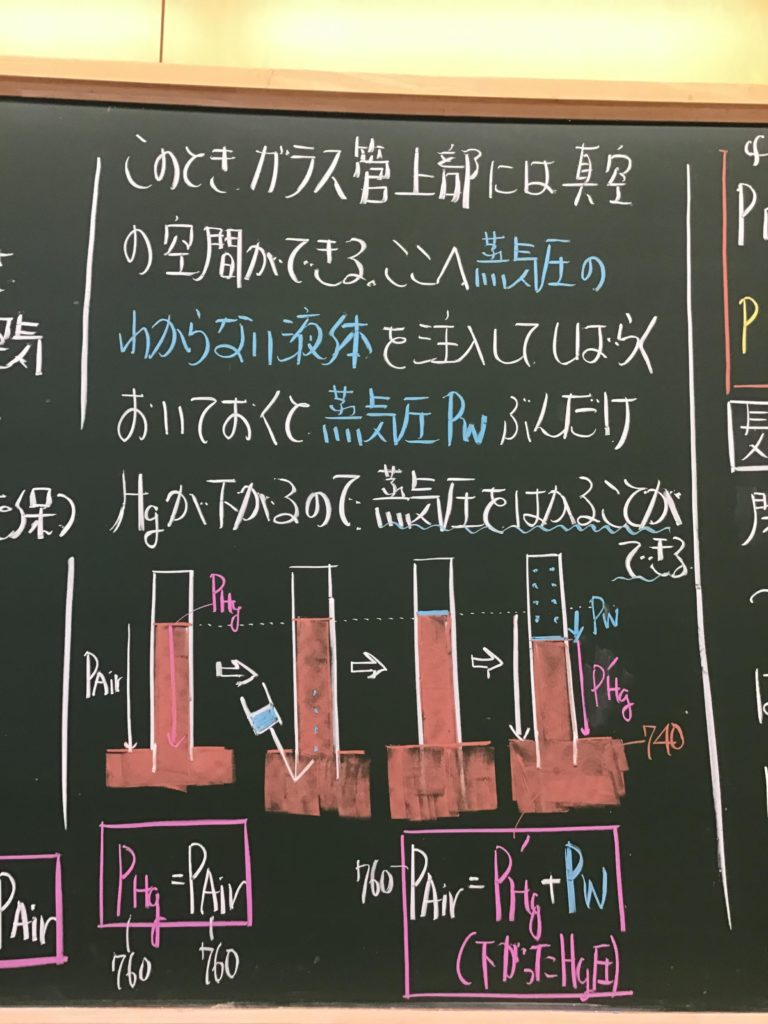 このときガラス管上部には真空
の空間ができる。ここへ蒸気圧の
わからない液体を注入してしばらく
おいておくと蒸気圧PWぶんだけ
Hgが下がるので蒸気圧をはかることが
できる
PHg
PAir
PW
P'Hg
740
PHg=PAir
760 760
760 PAir=P'Hg+PW
(下がったHg圧)
気
保)
PAir
P
P
閉